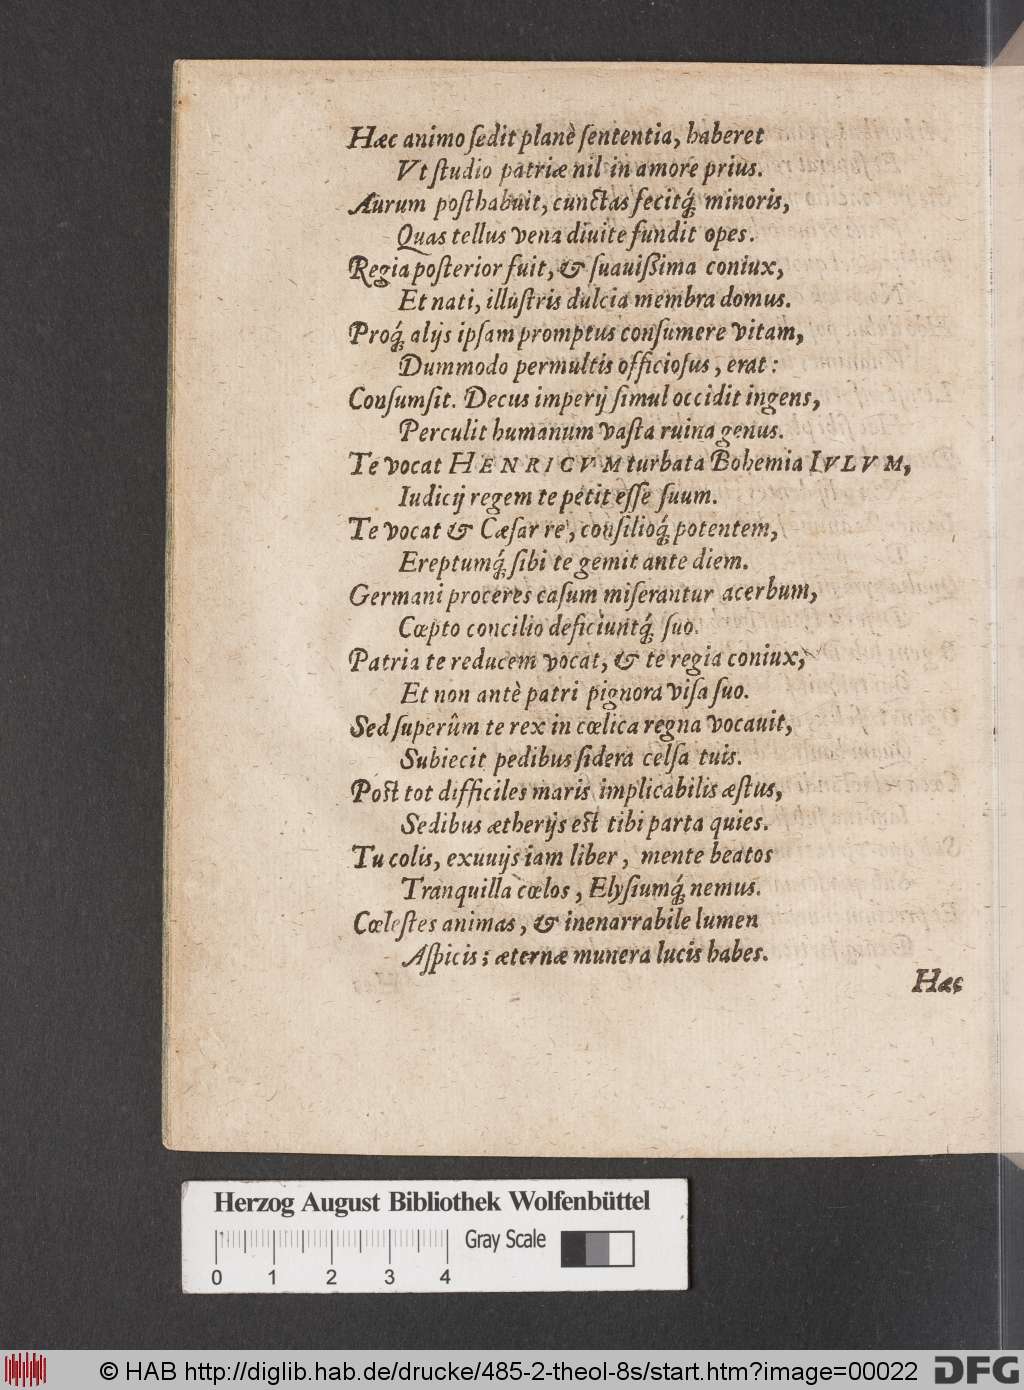 Hæc animo ſedit planè ſententia, haberet
Vt ſtudio patriæ nil in amore prius.
Aurum poſthabuit, cunctas fecitq́; minoris,
Quas tellus vena diuite fundit opes.
Regia poſterior fuit, & ſuauißima coniux,
Et nati, illuſtris dulcia membra domus.
Proq́; alijs ipſam promptus conſumere vitam,
Dummodo permultis officioſus, erat:
Conſumſit. Decus imperij ſimul occidit ingens,
Perculit humanum vaſta ruina genus.
Te vocat HENRICVM turbata Bohemia IVLVM,
Iudicij regem te petit eſſe ſuum.
Te vocat & Cæſar re, conſilioq́; potentem,
Ereptumq́; ſibi te gemit ante diem.
Germani proceres caſum miſerantur acerbum,
Cœpto concilio deficiuntq́; ſuo.
Patria te reducem vocat, & te regia coniux,
Et non antè patri pignora viſa ſuo.
Sed ſuperûm te rex in cœlica regna vocauit,
Subiecit pedibus ſidera celſa tuis.
Poſt tot difficiles maris implicabilis æſtus,
Sedibus ætherijs eſt tibi parta quies.
Tu colis, exuuijs iam liber, mente beatos
Tranquilla cœlos, Elyſiumq́; nemus.
Cœleſtes animas, & inenarrabile lumen
Aſpicis; æternæ munera lucis habes.
Hæc
Herzog August Bibliothek Wolfenbüttel
Gray Scale
0 1 2 3 4
© HAB http://diglib.hab.de/drucke/485-2-theol-8s/start.htm?image=00022
DFG